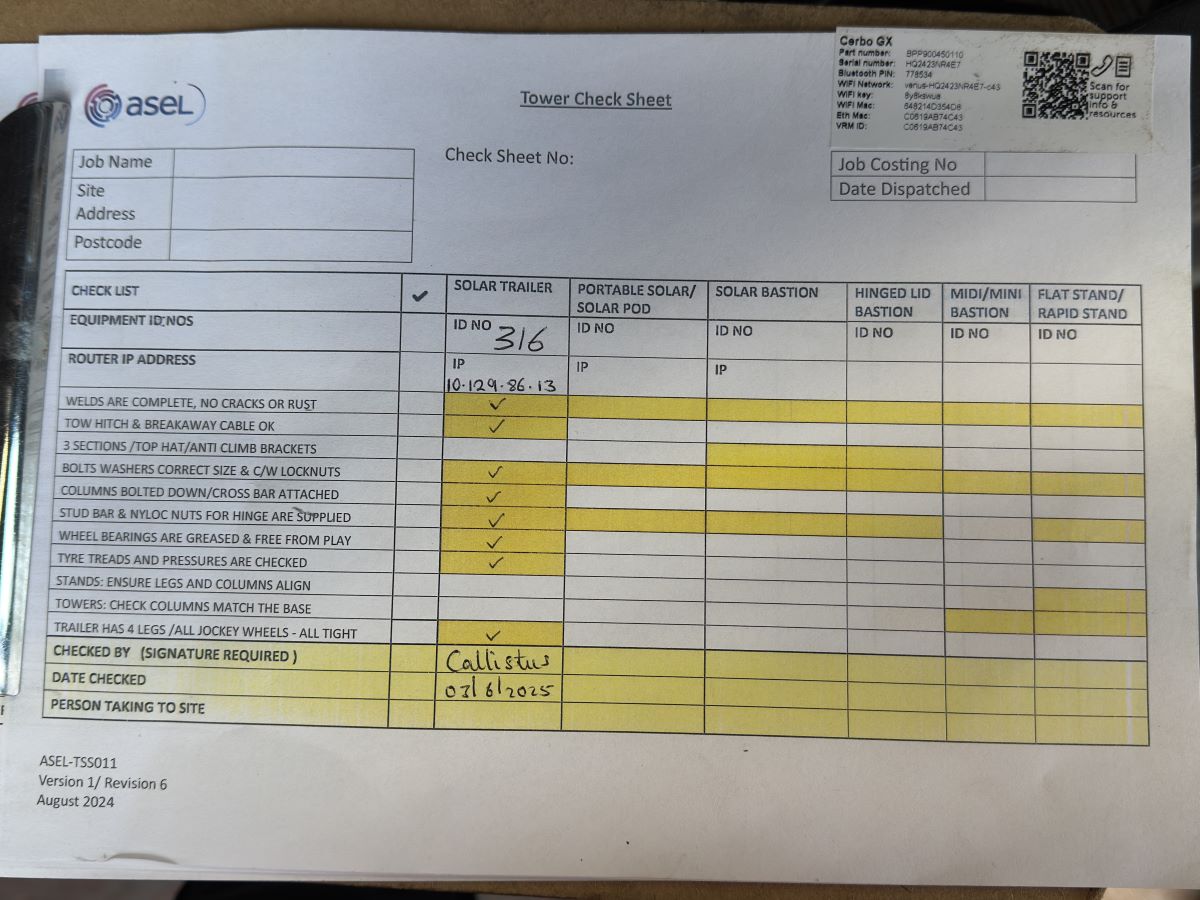 asel
Tower Check Sheet
Cerbo GX
Part number: BPP900450110
Serial number: HQ2423NR4E7
Bluetooth PIN: 778534
WiFi Network: venus-HQ2423NR4E7-c43
WiFi key:
WiFi Mac:
Eth Mac: C0619AB74C43
VRM ID: C0619AB74C43
Scan for
support
info &
resources
Job Name
Site
Address
Postcode
Check Sheet No:
Job Costing No
Date Dispatched
CHECK LIST ✓ SOLAR TRAILER PORTABLE SOLAR/ SOLAR POD SOLAR BASTION HINGED LID BASTION MIDI/MINI BASTION FLAT STAND/ RAPID STAND
EQUIPMENT ID NOS ID NO 316 ID NO ID NO ID NO ID NO ID NO
ROUTER IP ADDRESS IP 10.129.86.13 IP IP
WELDS ARE COMPLETE, NO CRACKS OR RUST ✓
TOW HITCH & BREAKAWAY CABLE OK ✓
3 SECTIONS /TOP HAT/ANTI CLIMB BRACKETS
BOLTS WASHERS CORRECT SIZE & C/W LOCKNUTS ✓
COLUMNS BOLTED DOWN/CROSS BAR ATTACHED ✓
STUD BAR & NYLOC NUTS FOR HINGE ARE SUPPLIED ✓
WHEEL BEARINGS ARE GREASED & FREE FROM PLAY ✓
TYRE TREADS AND PRESSURES ARE CHECKED ✓
STANDS: ENSURE LEGS AND COLUMNS ALIGN
TOWERS: CHECK COLUMNS MATCH THE BASE
TRAILER HAS 4 LEGS /ALL JOCKEY WHEELS - ALL TIGHT ✓
CHECKED BY (SIGNATURE REQUIRED ) Callistus
DATE CHECKED 03/6/2025
PERSON TAKING TO SITE
ASEL-TSS011
Version 1/ Revision 6
August 2024